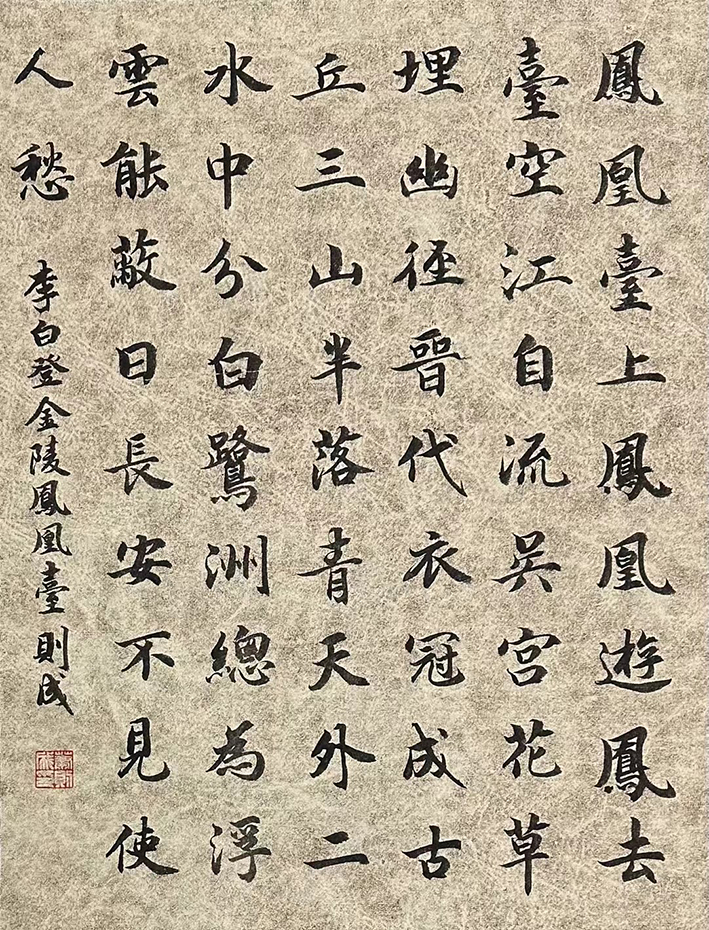 鳳凰臺上鳳凰遊鳳去
臺空江自流吳宮花草
埋幽徑晉代衣冠成古
丘三山半落青天外二
水中分白鷺洲總為浮
雲能蔽日長安不見使
人愁
李白登金陵鳳凰臺則成